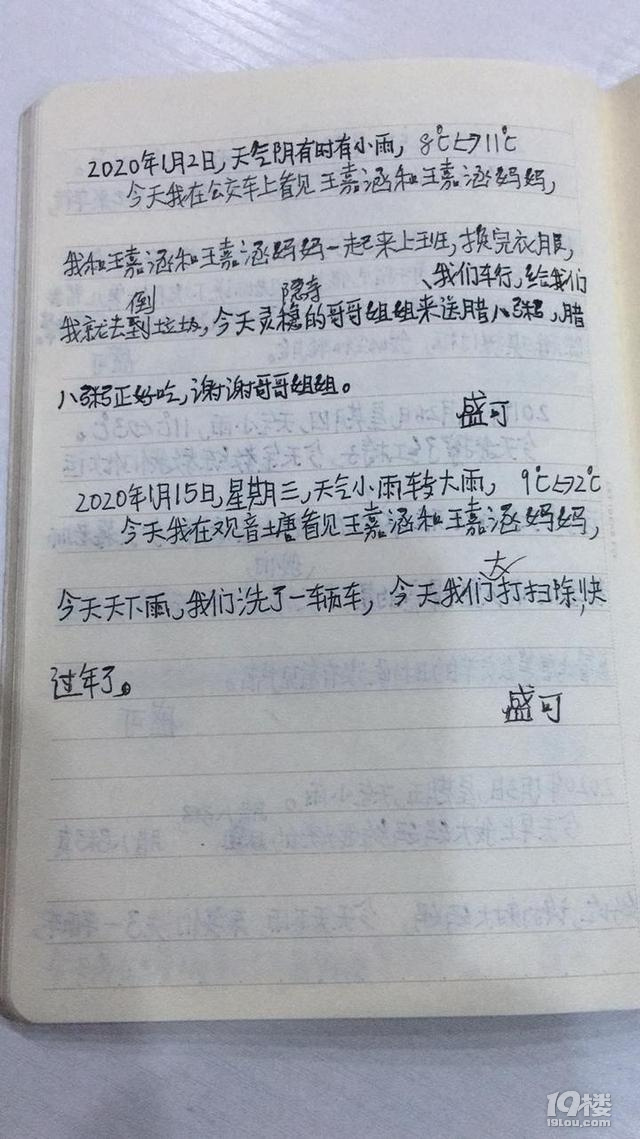 2020年1月2日,天气阴有时有小雨, 8℃↔11℃
今天我在公交车上看见王嘉涵和王嘉涵妈妈,
我和王嘉涵和王嘉涵妈妈一起来上班,换完衣服,
倒 隐寺
我就去到垃圾,今天灵稳的哥哥组组来、我们车行,给我们送腊八粥,腊
八粥正好吃,谢谢哥哥组组。
盛可
2020年1月15日,星期三,天气小雨转大雨, 9℃↔2℃
今天我在观音塘看见王嘉涵和王嘉涵妈妈,
大
今天天下雨,我们洗了一辆车,今天我们打扫除,快
过年了。
盛可
19楼
19lou.com